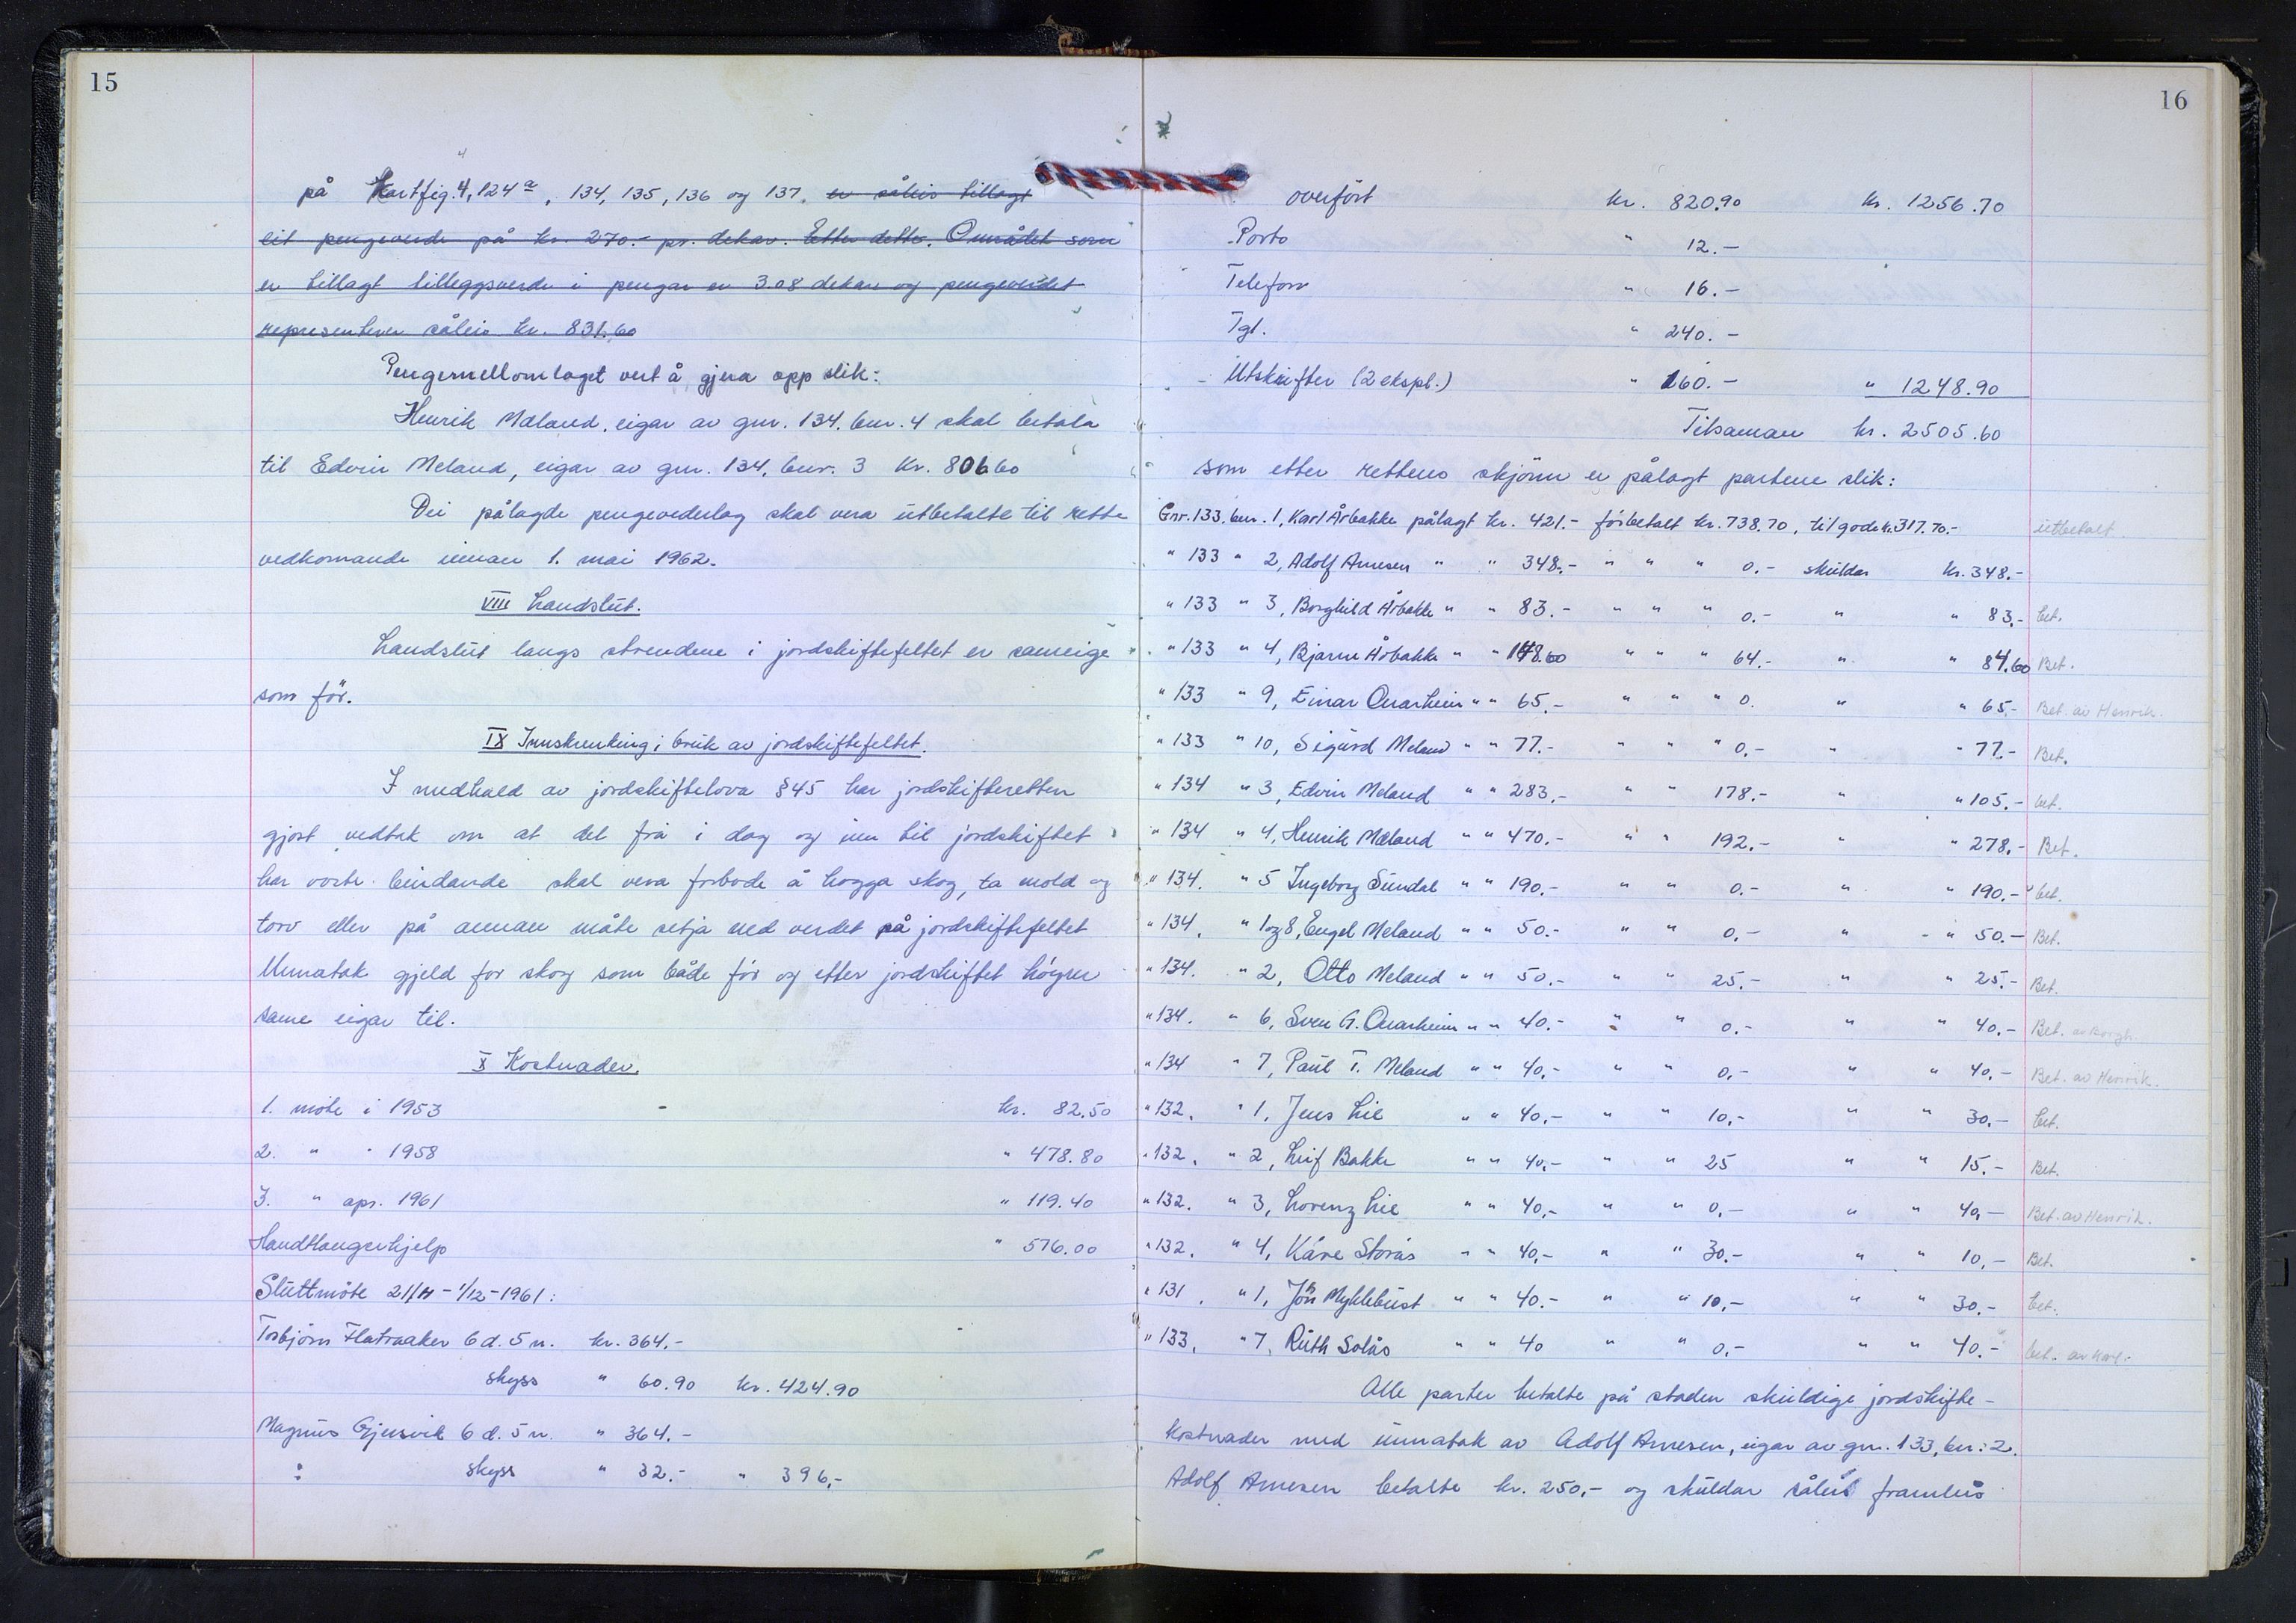 15
på Kartfig. 4, 124a, 134, 135, 136 og 137, er såleis tillagt
eit pengeverde på kr. 270.- pr. dekar. Etter dette. Området som
er tillagt tilleggsverde i pengar er 3.08 dekar og pengeverdet
representerer såleis kr. 831.60
Pengemellomlaget vert å gjera opp slik:
Henrik Mæland, eigar av gnr. 134. bnr. 4 skal betala
til Edvin Meland, eigar av gnr. 134, bnr. 3 kr. 806.60
Dei pålagde pengevederlag skal vera utbetalte til rette
vedkomande innan 1. mai 1962.
VIII Landslut.
Landslut langs strendene i jordskiftefeltet er sameige
som før.
IX Innskrenking i bruk av jordskiftefeltet.
I medhald av jordskiftelova §45 har jordskifteretten
gjort vedtak om at det frå i dag og inn til jordskiftet
har vorte bindande skal vera forbode å hogga skog, ta mold og
torv eller på annan måte setja ned verdet på jordskiftefeltet
Unnatak gjeld for skog som både før og etter jordskiftet høyrer
same eigar til.
X Kostnader.
1. møte i 1953 - kr. 82.50
2. " " 1958 " 478.80
3. " apr. 1961 " 119.40
Handtlangerhjelp " 576.00
Sluttmøte 21/11 - 1/12 - 1961:
Torbjørn Flatraaker 6 d. 5 n. kr. 364.-
skyss " 60.90 kr. 424.90
Magnus Gjersvik 6 d. 5 n. " 364.-
: skyss " 32.- " 396,-
16
overført kr. 820.90 kr. 1256.70
Porto " 12.-
Telefon " 16.-
Tgl. " 240.-
Utskrifter (2 ekspl.) " 160.- " 1248.90
Tilsaman kr. 2505.60
som etter rettens skjønn er pålagt partene slik:
Gnr. 133. bnr. 1, Karl Årbakke pålagt kr. 421.- førbetalt kr. 738.70, til gode kr. 317.70.- utbetalt.
" 133 " 2, Adolf Arnesen " " 348.- " " " 0.- skuldar kr. 348.-
" 133 " 3, Borghild Årbakke " " 83.- " " " 0.- " " 83.- bet.
" 133 " 4, Bjarne Årbakke " " 148.60 " " " 64.- " " 84.60 Bet.
" 133 " 9, Einar Qvarheim " " 65.- " " " 0. " " 65.- Bet. av Henrik.
" 133 " 10, Sigurd Meland " " 77.- " " " 0.- " " 77.- Bet.
" 134 " 3, Edvin Meland " " 283.- " " 178.- " " 105.- bet.
" 134 " 4, Henrik Mæland " " 470.- " " 192.- " " 278.- Bet.
" 134. " 5 Ingeborg Sundal " " 190.- " " 0.- " " 190.- bet.
" 134. " 1 og 8, Engel Meland " " 50.- " " 0.- " " 50.- Bet.
" 134. " 2, Otto Meland " " 50.- " " 25.- " " 25.- Bet.
" 134. " 6, Sven G. Qvarheim " " 40.- " " 0.- " " 40.- Bet. av Borgh.
" 134 " 7, Paul T. Meland " " 40.- " " 0.- " " 40.- Bet. av Henrik.
" 132. " 1, Jens Lie " " 40.- " " 10.- " " 30.- bet.
" 132. " 2, Leif Bakke " " 40.- " " 25 " " 15.- Bet.
" 132. " 3, Lorenz Lie " " 40.- " " 0.- " " 40.- Bet. av Henrik.
" 132. " 4, Kåre Storås " " 40.- " " 30.- " " 10.- Bet.
" 131. " 1, Jon Myklebust " " 40.- " " 10.- " " 30.- bet.
" 133. " 7, Ruth Solås " " 40 " " 0.- " " 40.- bet. av Karl.
Alle parter betalte på staden skuldige jordskifte-
kostnader med unnatak av Adolf Arnesen, eigar av gnr. 133, bnr. 2.
Adolf Arnesen betalte kr. 250.- og skuldar såleis framleis